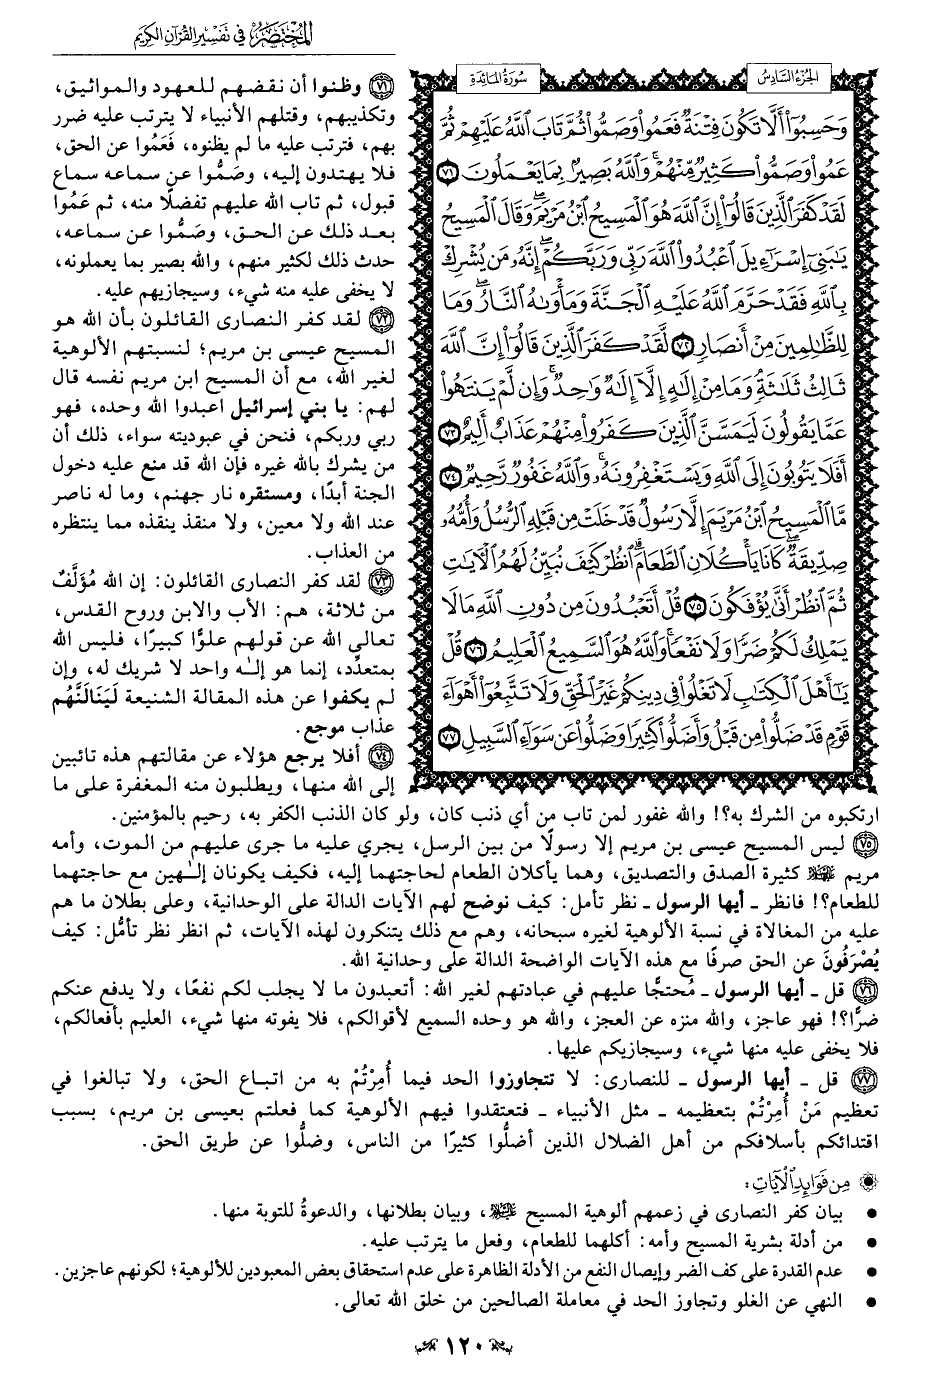 المُخْتَصَرُ في تَفْسِيرِ القُرْآنِ الكَرِيمِ
الجزء السادس
سورة المائدة
وَحَسِبُوٓاْ أَلَّا تَكُونَ فِتۡنَةٞ فَعَمُواْ وَصَمُّواْ ثُمَّ تَابَ ٱللَّهُ عَلَيۡهِمۡ ثُمَّ
عَمُواْ وَصَمُّواْ كَثِيرٞ مِّنۡهُمۡۚ وَٱللَّهُ بَصِيرُۢ بِمَا يَعۡمَلُونَ ٧١
لَقَدۡ كَفَرَ ٱلَّذِينَ قَالُوٓاْ إِنَّ ٱللَّهَ هُوَ ٱلۡمَسِيحُ ٱبۡنُ مَرۡيَمَۖ وَقَالَ ٱلۡمَسِيحُ
يَٰبَنِيٓ إِسۡرَٰٓءِيلَ ٱعۡبُدُواْ ٱللَّهَ رَبِّي وَرَبَّكُمۡۖ إِنَّهُۥ مَن يُشۡرِكۡ
بِٱللَّهِ فَقَدۡ حَرَّمَ ٱللَّهُ عَلَيۡهِ ٱلۡجَنَّةَ وَمَأۡوَىٰهُ ٱلنَّارُۖ وَمَا
لِلظَّٰلِمِينَ مِنۡ أَنصَارٖ ٧٢ لَّقَدۡ كَفَرَ ٱلَّذِينَ قَالُوٓاْ إِنَّ ٱللَّهَ
ثَالِثُ ثَلَٰثَةٖۘ وَمَا مِنۡ إِلَٰهٍ إِلَّآ إِلَٰهٞ وَٰحِدٞۚ وَإِن لَّمۡ يَنتَهُواْ
عَمَّا يَقُولُونَ لَيَمَسَّنَّ ٱلَّذِينَ كَفَرُواْ مِنۡهُمۡ عَذَابٌ أَلِيمٌ ٧٣
أَفَلَا يَتُوبُونَ إِلَى ٱللَّهِ وَيَسۡتَغۡفِرُونَهُۥۚ وَٱللَّهُ غَفُورٞ رَّحِيمٞ ٧٤
مَّا ٱلۡمَسِيحُ ٱبۡنُ مَرۡيَمَ إِلَّا رَسُولٞ قَدۡ خَلَتۡ مِن قَبۡلِهِ ٱلرُّسُلُ وَأُمُّهُۥ
صِدِّيقَةٞۖ كَانَا يَأۡكُلَانِ ٱلطَّعَامَۗ ٱنظُرۡ كَيۡفَ نُبَيِّنُ لَهُمُ ٱلۡأٓيَٰتِ
ثُمَّ ٱنظُرۡ أَنَّىٰ يُؤۡفَكُونَ ٧٥ قُلۡ أَتَعۡبُدُونَ مِن دُونِ ٱللَّهِ مَا لَا
يَمۡلِكُ لَكُمۡ ضَرّٗا وَلَا نَفۡعٗاۚ وَٱللَّهُ هُوَ ٱلسَّمِيعُ ٱلۡعَلِيمُ ٧٦ قُلۡ
يَٰٓأَهۡلَ ٱلۡكِتَٰبِ لَا تَغۡلُواْ فِي دِينِكُمۡ غَيۡرَ ٱلۡحَقِّ وَلَا تَتَّبِعُوٓاْ أَهۡوَآءَ
قَوۡمٖ قَدۡ ضَلُّواْ مِن قَبۡلُ وَأَضَلُّواْ كَثِيرٗا وَضَلُّواْ عَن سَوَآءِ ٱلسَّبِيلِ ٧٧
٧١ وظنوا أن نقضهم للعهود والمواثيق،
وتكذيبهم، وقتلهم الأنبياء لا يترتب عليه ضرر
بهم، فترتب عليه ما لم يظنوه، فَعَمُوا عن الحق،
فلا يهتدون إليه، وصَمُّوا عن سماعه سماع
قبول، ثم تاب الله عليهم تفضلًا منه، ثم عَمُوا
بعد ذلك عن الحق، وصَمُّوا عن سماعه،
حدث ذلك لكثير منهم، والله بصير بما يعملونه،
لا يخفى عليه منه شيء، وسيجازيهم عليه.
٧٢ لقد كفر النصارى القائلون بأن الله هو
المسيح عيسى بن مريم؛ لنسبتهم الألوهية
لغير الله، مع أن المسيح ابن مريم نفسه قال
لهم: يا بني إسرائيل اعبدوا الله وحده، فهو
ربي وربكم، فنحن في عبوديته سواء، ذلك أن
من يشرك بالله غيره فإن الله قد منع عليه دخول
الجنة أبدًا، ومستقره نار جهنم، وما له ناصر
عند الله ولا معين، ولا منقذ ينقذه مما ينتظره
من العذاب.
٧٣ لقد كفر النصارى القائلون: إن الله مُؤَلَّفٌ
من ثلاثة، هم: الأب والابن وروح القدس،
تعالى الله عن قولهم علوًّا كبيرًا، فليس الله
بمتعدِّد، إنما هو إلـٰه واحد لا شريك له، وإن
لم يكفوا عن هذه المقالة الشنيعة لَيَنَالَنَّهُم
عذاب موجع.
٧٤ أفلا يرجع هؤلاء عن مقالتهم هذه تائبين
إلى الله منها، ويطلبون منه المغفرة على ما
ارتكبوه من الشرك به؟! والله غفور لمن تاب من أي ذنب كان، ولو كان الذنب الكفر به، رحيم بالمؤمنين.
٧٥ ليس المسيح عيسى بن مريم إلا رسولًا من بين الرسل، يجري عليه ما جرى عليهم من الموت، وأمه
مريم كثيرة الصدق والتصديق، وهما يأكلان الطعام لحاجتهما إليه، فكيف يكونان إلـٰهين مع حاجتهما
للطعام؟! فانظر ـ أيها الرسول ـ نظر تأمل: كيف نوضح لهم الآيات الدالة على الوحدانية، وعلى بطلان ما هم
عليه من المغالاة في نسبة الألوهية لغيره سبحانه، وهم مع ذلك يتنكرون لهذه الآيات، ثم انظر نظر تأمُّل: كيف
يُصْرَفُونَ عن الحق صرفًا مع هذه الآيات الواضحة الدالة على وحدانية الله.
٧٦ قل ـ أيها الرسول ـ مُحتجًّا عليهم في عبادتهم لغير الله: أتعبدون ما لا يجلب لكم نفعًا، ولا يدفع عنكم
ضرًّا؟! فهو عاجز، والله منزه عن العجز، والله هو وحده السميع لأقوالكم، فلا يفوته منها شيء، العليم بأفعالكم،
فلا يخفى عليه منها شيء، وسيجازيكم عليها.
٧٧ قل ـ أيها الرسول ـ للنصارى: لا تتجاوزوا الحد فيما أُمِرْتُم به من اتباع الحق، ولا تبالغوا في
تعظيم مَنْ أُمِرْتُمْ بتعظيمه ـ مثل الأنبياء ـ فتعتقدوا فيهم الألوهية كما فعلتم بعيسى بن مريم، بسبب
اقتدائكم بأسلافكم من أهل الضلال الذين أضلُّوا كثيرًا من الناس، وضلُّوا عن طريق الحق.
من فوائد الآيات:
• بيان كفر النصارى في زعمهم ألوهية المسيح ، وبيان بطلانها، والدعوةُ للتوبة منها.
• من أدلة بشرية المسيح وأمه: أكلهما للطعام، وفعل ما يترتب عليه.
• عدم القدرة على كف الضر وإيصال النفع من الأدلة الظاهرة على عدم استحقاق بعض المعبودين للألوهية؛ لكونهم عاجزين.
• النهي عن الغلو وتجاوز الحد في معاملة الصالحين من خلق الله تعالى.
١٢٠